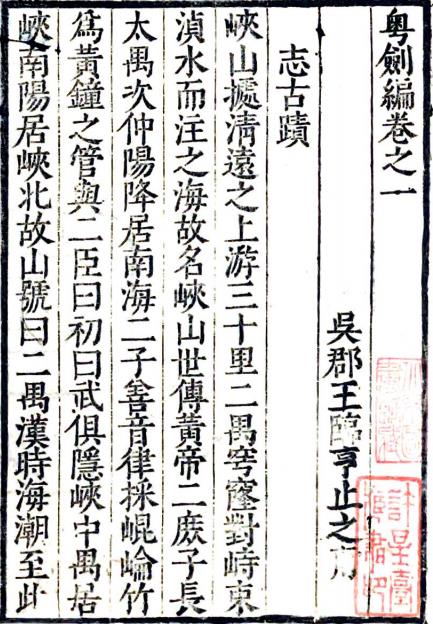 粤劍編卷之一
吳郡王臨亨止之甫
志古蹟
峽山據清遠之上游三十里二禺穹窿對峙東
湞水而注之海故名峽山世傳黃帝二庶子長
太禺次仲陽降居南海二子善音律採崐崘竹
爲黃鐘之管與二臣曰初曰武俱隱峽中禺居
峽南陽居峽北故山號曰二禺漢時海潮至此
許星臺
藏書印